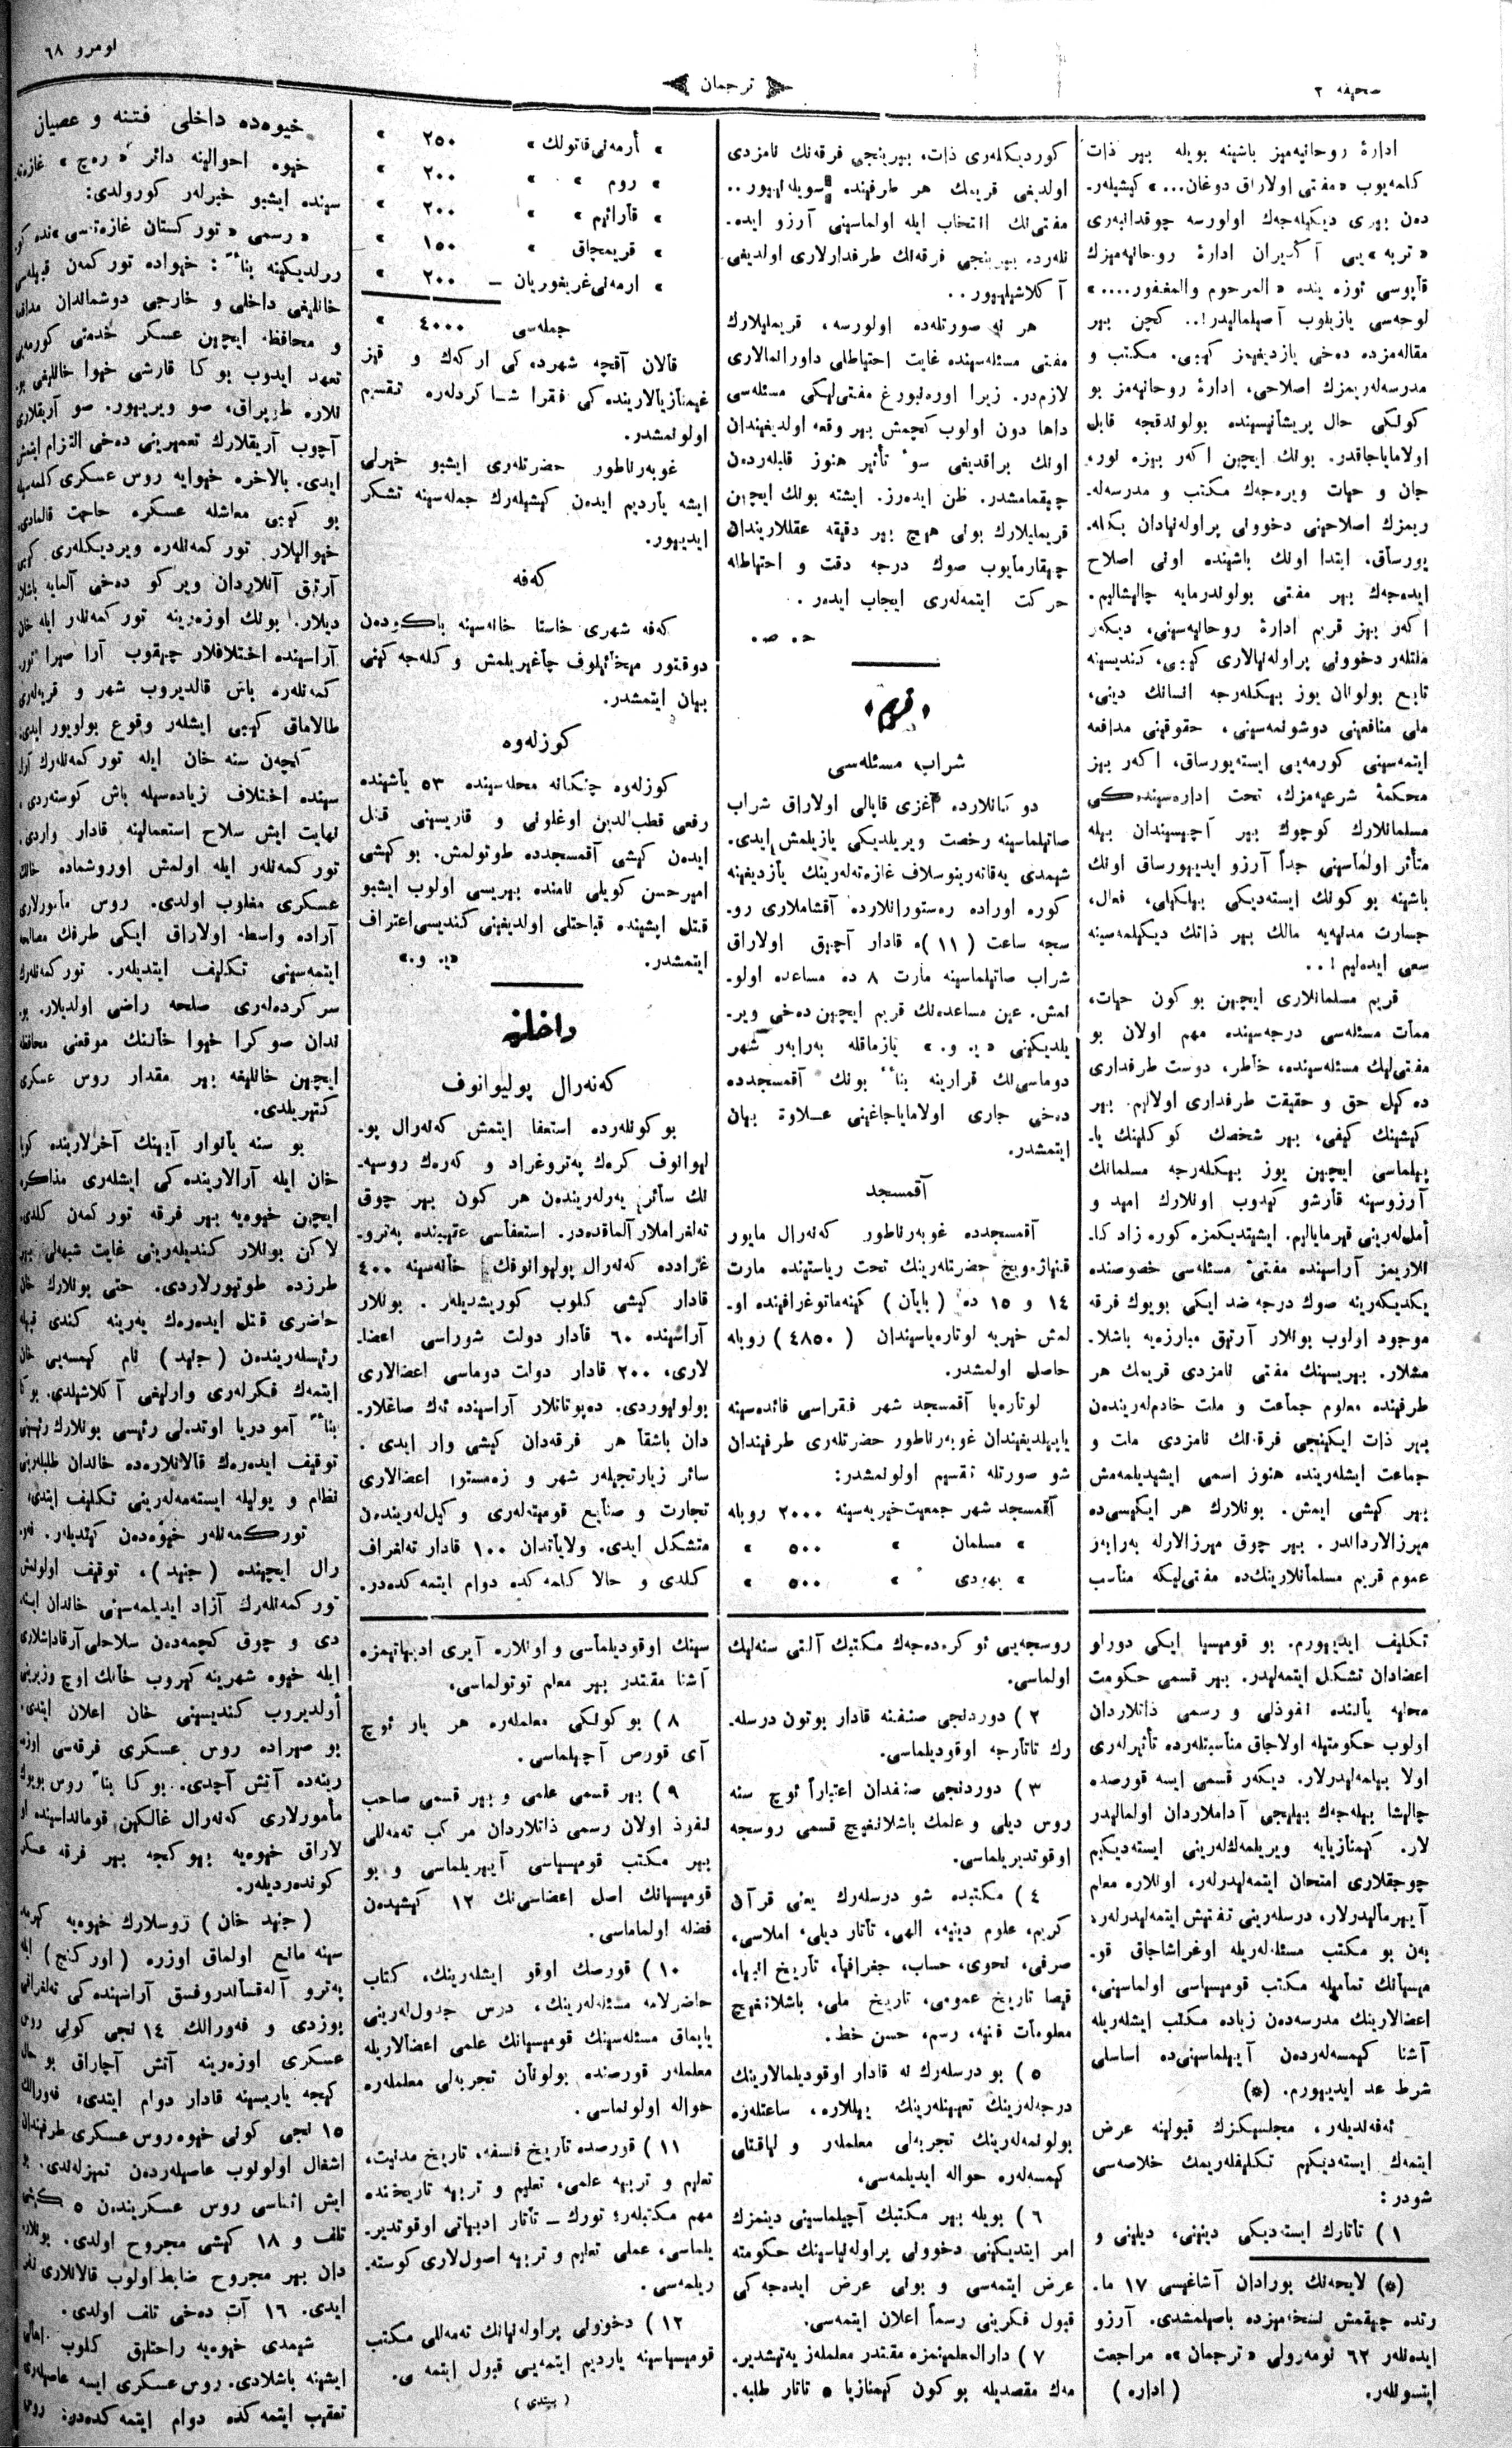 صحیفه ۲
ترجمان
نومرو ٦٨
ادارهٔ روحانیه‌میز باشینه بویله بیر ذات
كلمه‌یوب «مفتی اولاراق دوغان...» كیشیلر-
دن بیری دیكیله‌جك اولورسه چوقدانبری
«تربه»یی آكدیران ادارهٔ روحانیه‌میزك
قاپوسی ئوزه‌ینه «المرحوم والمغفور....»
لوحه‌سی یازیلوب آصیلمالیدر!.. كچن بیر
مقاله‌مزده دخی یازدیغیمز كیبی، مكتب و
مدرسه‌لریمزك اصلاحی، ادارهٔ روحانیه‌مز بو
كونكی حال پریشانیسینده بولوندقجه قابل
اولامایاجاقدر. بونك ایچین اكر بیزه نور،
جان و حیات ویره‌جك مكتب و مدرسه‌لـ-
ریمزك اصلاحینی دخوونی پراوله‌نیادان بكله-
یورساق، ابتدا اونك باشینده اونی اصلاح
ایده‌جك بیر مفتی بولوندرمایه چالیشالیم.
اكر بیز قریم ادارهٔ روحانیه‌سینی، دیكر
ملتلر دخوونی پراوله‌نیالاری كیبی، كندیسینه
تابع بولونان یوز بیكلرجه انسانك دینی،
ملی منافعینی دوشونمه‌سینی، حقوقینی مدافعه
ایتمه‌سینی كورمه‌یی ایسته‌یورساق، اكر بیز
محكمهٔ شرعیه‌مزك، تحت اداره‌سینده‌كی
مسلمانلارك كوچوك بیر آجیسیندان بیله
متأثر اولماسینی جداً آرزو ایدییورساق اونك
باشینه بو كونك ایسته‌دیكی بیلكیلی، فعال،
جسارت مدنیه‌یه مالك بیر ذاتك دیكیلمه‌سینه
سعی ایده‌لیم!..
قریم مسلمانلاری ایچین بو كون حیات،
ممات مسئله‌سی درجه‌سینده مهم اولان بو
مفتی‌لیك مسئله‌سینده، خاطر، دوست طرفداری
ده‌كیل حق و حقیقت طرفداری اولالیم. بیر
كیشینك كیفی، بیر شخصك كوكلینك یا-
پیلماسی ایچین یوز بیكلرجه مسلمانك
آرزوسینه قارشو كیدوب اونلارك امید و
أمل‌لرینی قیرمایالیم. ایشیتدیكمزه كوره زادكا-
نلاریمز آراسینده مفتی مسئله‌سی خصوصنده
یكدیكرینه صوك درجه ضد ایكی بویوك فرقه
موجود اولوب بونلار آرتیق مبارزه‌یه باشلا-
مشلار. بیریسینك مفتی نامزدی قریمك هر
طرفینده معلوم جماعت و ملت خادم‌لریندن
بیر ذات ایكینجی فرقه‌نك نامزدی ملت و
جماعت ایشلرینده هنوز اسمی ایشیدیلمه‌مش
بیر كیشی ایمش. بونلارك هر ایكیسی‌ده
میرزالارداندر. بیر چوق میرزالارله برابر
عموم قریم مسلمانلارینك‌ده مفتی‌لیكه مناسب
كوردیكلمری ذات، بیرینجی فرقه‌نك نامزدی
اولدیغی قریمك هر طرفینده سویله‌نیور..
مفتی‌نك انتخاب ایله اولماسینی آرزو ایده-
نلرده بیرینجی فرقه‌نك طرفدارلاری اولدیغی
آكلاشیلییور..
هر نه صورتله‌ده اولورسه، قریملیلارك
مفتی مسئله‌سینده غایت احتیاطلی داورانمالاری
لازمدر. زیرا اوره‌نبورغ مفتی‌لیكی مسئله‌سی
داها دون اولوب كچمش بیر وقعه اولدیغیندان
اونك براقدیغی سوء تأثیر هنوز قلبلردن
چیقمامشدر، ظن ایده‌رز. ایشته بونك ایچین
قریملیلارك بونی هیچ بیر دقیقه عقللاریندان
چیقارمایوب صوك درجه دقت و احتیاطله
حركت ایتمه‌لری ایجاب ایدر.
ح. ص.
«قریم»
شراب مسئله‌سی
دوكانلارده آغزی قاپالی اولاراق شراب
صاتیلماسینه رخصت ویریلدیكی یازیلمش ایدی.
شیمدی یه‌قاته‌رینوسلاف غازه‌ته‌لرینك یازدیغینه
كوره اوراده ره‌ستورانلارده آقشاملاری رو-
سجه ساعت (١١)ه قادار آچیق اولاراق
شراب صاتیلماسینه مارت ٨ ده مساعده اولو-
نمش. عین مساعده‌نك قریم ایچین دخی ویر-
یلدیكینی «ی. و.» یازماقله برابر شهر
دوماسی‌نك قرارینه بناءً بونك آقمسجدده
دخی جاری اولامایاجاغینی عـلاوة بیان
ایتمشدر.
آقمسجد
آقمسجدده غوبه‌رناطور كه‌نه‌رال مایور
قنیاژه‌ویچ حضرتلرینك تحت ریاستینده مارت
١٤ و ١٥ ده (بایان) كینه‌ماتوغرافینده او-
لمش خیریه لوتاره‌یاسیندان (٤٨٥٠) روبله
حاصل اولمشدر.
لوتاره‌یا آقمسجد شهر فقراسی فائده‌سینه
یاپیلدیغیندان غوبه‌رناطور حضرتلری طرفیندان
شو صورتله تقسیم اولونمشدر:
آقمسجد شهر جمعیت‌خیریه‌سینه ٢٠٠٠ روبله
» مسلمان » ٥٠٠ »
» یهودی » ٥٠٠ »
» أرمه‌نی‌قاتولك » ٢٥٠ »
» روم » » ٢٠٠ »
» قارائیم » » ٢٠٠ »
» قریمچاق » ١٥٠ »
» ارمه‌نی‌غریغوریان – ٢٠٠ »
جمله‌سی ٤٠٠٠ »
قالان آقچه شهرده‌كی اركك و قیز
غیمنازیالارینده‌كی فقرا شاكردلره تقسیم
اولونمشدر.
غوبه‌رناطور حضرتلری ایشبو خیرلی
ایشه یاردیم ایدن كیشیلرك جمله‌سینه تشكر
ایدییور.
كفه
كفه شهری خاستا خانه‌سینه باكودن
دوقتور میخائیلوف چاغیریلمش و كله‌جه‌كینی
بیان ایتمشدر.
كوزله‌وه
كوزله‌وه چنكانه محله‌سینده ٥٣ یاشینده
رفعی قطب‌الدین اوغلونی و قاریسینی قتل
ایدن كیشی آقمسجدده طوتولمش. بو كیشی
امیرحسن كویلی نامنده بیریسی اولوب ایشبو
قتل ایشینده قباحتلی اولدیغینی كندیسی‌اعتراف
ایتمشدر. «ی. و.»
داخلیه
كه‌نه‌رال پولیوانوف
بو كونلرده استعفا ایتمش كه‌نه‌رال پو-
لیوانوف كرك په‌تروغراد و كرك روسیه-
نك سائر یرلریندن هر كون بیر چوق
ته‌لغراملار آلماقده‌در. استعفاسی عقبینده په‌ترو-
غرادده كه‌نه‌رال پولیوانوفك خانه‌سینه ٤٠٠
قادار كیشی كلوب كوریشدیلر. بونلار
آراسینده ٦٠ قادار دولت شوراسی اعضا-
لاری، ٢٠٠ قادار دولت دوماسی اعضالاری
بولونیوردی. ده‌پوتاتلار آراسینده تك صاغلار-
دان باشقا هر فرقه‌دان كیشی وار ایدی.
سائر زیارتجیلر شهر و زه‌مستوا اعضالاری
تجارت و صنایع قومیته‌لری و كیل‌لریندن
متشكل ایدی. ولایاتدان ١٠٠ قادار ته‌لغراف
كلدی و حالا كلمه‌كده دوام ایتمه‌كده‌در.
خیوه‌ده داخلی فتنه و عصیان
خیوه احوالینه دائر «ره‌چ» غازه‌ته-
سینده ایشبو خبرلر كورولدی:
«رسمی «توركستان غازه‌تاسی»نده كو-
رولدیكینه بناءً: خیواده توركمن قبیله‌سی
خانلیغی داخلی و خارجی دوشماندان مدافعه
و محافظه ایچین عسكر خدمتی كورمه‌یی
تعهد ایدوب بوكا قارشی خیوا خانلیغی بو-
نلاره طوپراق، صو ویرییور. صو آریقلاری
آچوب آریقلارك تعمیرینی دخی التزام ایتمش
ایدی. بالاخره خیوایه روس عسكری كلمه‌سیله
بو كیبی معاشله عسكره حاجت قالمادی.
خیوالیلار توركمنلره ویردیكلری كیبی
آرتیق آنلاردان ویركو دخی آلمایه باشلا-
دیلار. بونك اوزه‌رینه توركمنلر ایله خان
آراسینده اختلافلار چیقوب آرا صیرا تور-
كمنلره باش قالدیروب شهر و قریه‌لری
طالاماق كیبی ایشلر وقوع بولویور ایدی.
كچن سنه خان ایله توركمنلرك آرا-
سینده اختلاف زیاده‌سیله باش كوستردی،
نهایت ایش سلاح استعمالینه قادار واردی.
توركمنلر ایله اولمش اوروشماده خانك
عسكری مغلوب اولدی. روس مأمورلاری
آراده واسطه اولاراق ایكی طرفك مصالحه
ایتمه‌سینی تكلیف ایتدیلر. توركمنلرك
سركرده‌لری صلحه راضی اولدیلار. بو-
ندان صوكرا خیوا خانینك موقعنی محافظه
ایچین خانلیغه بیر مقدار روس عسكری
كتیریلدی.
بو سنه یانوار آیینك آخرلارینده كویا
خان ایله آرالارینده‌كی ایشلری مذاكره
ایچین خیوه‌یه بیر فرقه توركمن كلدی.
لاكن بونلار كندیلرینی غایت شبهه‌لی بیر
طرزده طوتیورلاردی. حتی بونلارك خان
حاضری قتل ایده‌رك یرینه كندی قبیله
رئیسلریندن (جنید) نام كیمسه‌یی خان
ایتمك فكرلری وارلیغی آكلاشیلدی. بوكا
بناءً آمودریا اوتدیلی رئیسی بونلارك رئیسینی
توقیف ایده‌رك قالانلارده خاندان طلبلرینی
نظام و یولیله ایسته‌مه‌لرینی تكلیف ایتدی.
توركمنلر خیوه‌دن كیتدیلر.
رال ایچینده (جنید)، توقیف اولونمش
توركمنلرك آزاد ایدیلمه‌سینی خاندان ایسته-
دی و چوق كچمه‌دن سلاحلی آرقاداشلاری
ایله خیوه شهرینه كیروب خانك اوچ وزیرینی
أولدیروب كندیسینی خان اعلان ایتدی.
بو صیراده روس عسكری فرقه‌سی اوزه-
رینه‌ده آتش آچدی. بوكا بناءً روس بویوك
مأمورلاری كه‌نه‌رال غالكین قومانداسینده او-
لاراق خیوه‌یه بیوكجه بیر فرقه عسكر
كونده‌ردیلر.
(جنید خان) روسلارك خیوه‌یه كیرمه-
سینه مانع اولماق اوزره (اوركنج) ایله
په‌ترو آله‌قساندروفسق آراسینده‌كی ته‌لغرافی
بوزدی و فه‌ورالك ١٤ نجی كونی روس
عسكری اوزه‌رینه آتش آچاراق بو حال
كیجه یاریسینه قادار دوام ایتدی. فه‌ورالك
١٥ نجی كونی خیوه روس عسكری طرفیندان
اشغال اولونوب عاصیلردن تمیزلندی. بو
ایش اثناسی روس عسكریندن ٥ كیشی
تلف و ١٨ كیشی مجروح اولدی. بونلار-
دان بیر مجروح ضابط اولوب قالانلاری نفر
ایدی. ١٦ آت دخی تلف اولدی.
شیمدی خیوه‌یه راحتلیق كلوب اهالی
ایشینه باشلادی. روس عسكری ایسه عاصیلری
تعقیب ایتمه‌كده دوام ایتمه‌كده‌در. روس
تكلیف ایدییورم. بو قومیسیا ایكی دورلو
اعضادان تشكل ایتمه‌لیدر. بیر قسمی حكومت
محلیه یاننده نفوذلی و رسمی ذاتلاردان
اولوب حكومتیله اولاجاق مناسبتلرده تأثیرلری
اولا بیلمه‌لیدرلار. دیكر قسمی ایسه قورصده
چالیشا بیله‌جك بیلیجی آداملاردان اولمالیدر
لار. كیمنازیایه ویریلمه‌لرینی ایسته‌دیكیم
چوجقلاری امتحان ایتمه‌لیدرلر، اونلاره معلم
آییرمالیدرلار، درسلرینی تفتیش ایتمه‌لیدرلر.
بن بو مكتب مسئله‌لریله اوغراشاجاق قو-
میسیانك تمامیله مكتب قومیسیاسی اولماسینی،
اعضالارینك مدرسه‌دن زیاده مكتب ایشلریله
آشنا كیمسه‌لردن آییلماسینی‌ده اساسلی
شرط عد ایدییورم. (*)
ئه‌فه‌ندیلر، مجلسیكزك قبولینه عرض
ایتمك ایسته‌دیكیم تكلیفلریمك خلاصه‌سی
شودر:
١) تاتارك ایسته‌دیكی دینینی، دیلینی و
(*) لایحه‌نك بورادان آشاغیسی ١٧ ما-
رتده چیقمش نسخه‌میزده باصیلمشدی. آرزو
ایدنلر ٦٢ نومه‌رولی «ترجمان»ه مراجعت
ایتسونلر. (اداره)
روسجه‌یی ئوكره‌ده‌جك مكتبك آلتی سنه‌لیك
اولماسی.
٢) دوردنجی صنفنه قادار بوتون درسلـ-
رك تاتارجه اوقودیلماسی.
٣) دوردنجی صنفدان اعتباراً ئوچ سنه
روس دیلی و علمك باشلانغیچ قسمی روسجه
اوقوتدیریلماسی.
٤) مكتبده شو درسلرك یعنی قرآن
كریم، علوم دینیه، الهی، تاتار دیلی، املاسی،
صرفی، نحوی، حساب، جغرافیا، تاریخ انبیا،
قیصا تاریخ عمومی، تاریخ ملی، باشلانغیچ
معلومات فنیه، رسم، حسن خط.
٥) بو درسلرك نه قادار اوقودیلمالارینك
درجه‌لرینك تعیینلرینك ییللاره، ساعتلره
بولونمه‌لرینك تجربه‌لی معلملر و لیاقتلی
كیمسه‌لره حواله ایدیلمه‌سی.
٦) بویله بیر مكتبك آچیلماسینی دینمزك
امر ایتدیكینی دخوونی پراوله‌نیاسینك حكومته
عرض ایتمه‌سی و بونی عرض ایده‌جه‌كی
قبول فكرینی رسماً اعلان ایتمه‌سی.
٧) دارالمعلمینمزه مقتدر معلملر یه‌تیشدیر-
مك مقصدیله بو كون كیمنازیا ٥ تاتار طلبه-
سینك اوقودیلماسی و اونلاره آیری ادبیاتیمزه
آشنا مقتدر بیر معلم توتولماسی.
٨) بو كونكی معلملره هر یاز ئوچ
آی قورص آچیلماسی.
٩) بیر قسمی علمی و بیر قسمی صاحب
نفوذ اولان رسمی ذاتلاردان مركب ته‌مه‌للی
بیر مكتب قومیسیاسی آییریلماسی و بو
قومیسیانك اصل اعضاسی‌نك ١٢ كیشیدن
فضله اولماماسی.
١٠) قورصك اوقو ایشلرینك، كتاب
حاضرلامه مسئله‌لرینك، درس جدول‌لرینی
یاپماق مسئله‌سینك قومیسیانك علمی اعضالاریله
معلملر قورصنده بولونان تجربه‌لی معلملره
حواله اولونماسی.
١١) قورصده تاریخ فلسفه، تاریخ مدنیت،
تعلیم و تربیه علمی، تعلیم و تربیه تاریخنده
مهم مكتبلر؛ تورك – تاتار ادبیاتی اوقوتدیر-
یلماسی، عملی تعلیم و تربیه اصول‌لاری كوسته-
ریلمه‌سی.
١٢) دخوونی پراوله‌نیانك ته‌مه‌للی مكتب
قومیسیاسینه یاردیم ایتمه‌یی قبول ایتمه‌سی.
(بیتدی)